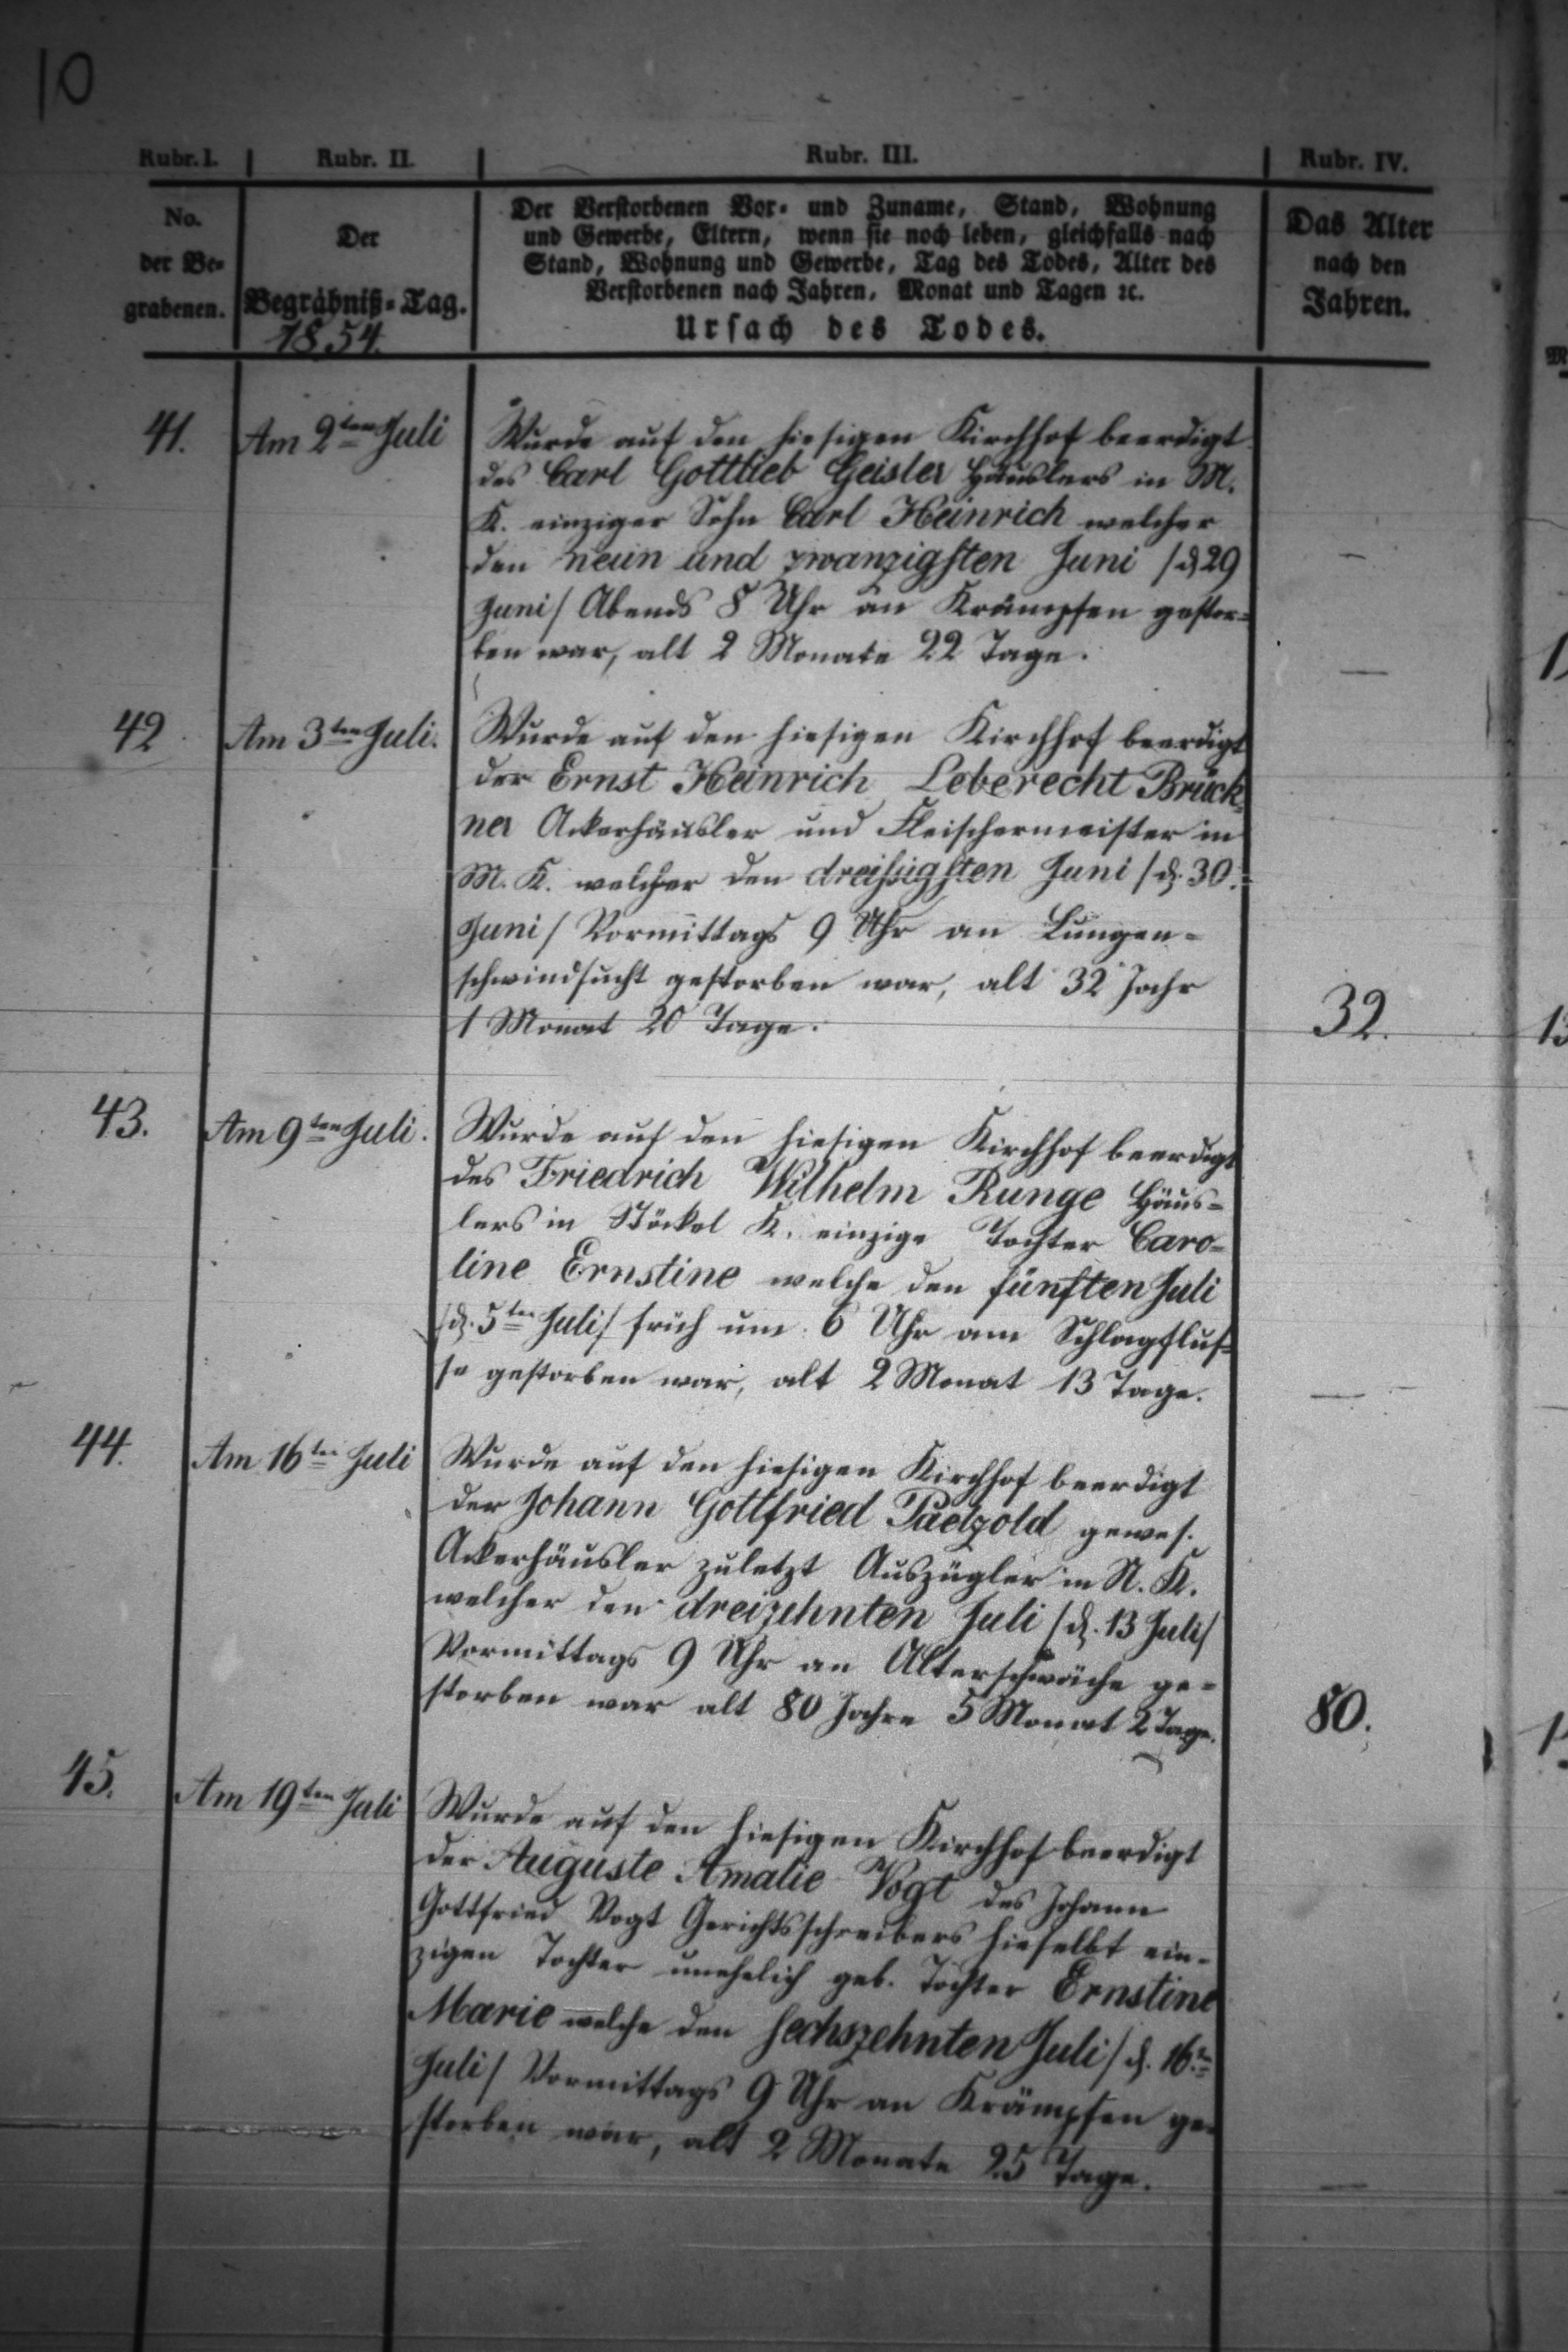 10
Rubr. I.
Rubr. II.
Rubr. III.
Rubr. IV.
No.
der Be-
grabenen.
Der
Begräbniß-Tag.
1854.
Der Verstorbenen Vor- und Zuname, Stand, Wohnung
und Gewerbe, Eltern, wenn sie noch leben, gleichfalls nach
Stand, Wohnung und Gewerbe, Tag des Todes, Alter des
Verstorbenen nach Jahren, Monat und Tagen ꝛc.
Ursach des Todes.
Das Alter
nach den
Jahren.
41.
Am 2ten Juli
Wurde auf den hiesigen Kirchhof beerdigt
des Carl Gottlieb Geisler Häuslers in M.
K. einziger Sohn Carl Heinrich welcher
den neun und zwanzigsten Juni /d. 29
Juni/ Abends 8 Uhr an Krämpfen gestor=
ben war, alt 2 Monate 22 Tage.
—
42
Am 3ten Juli.
Wurde auf den hiesigen Kirchhof beerdigt
der Ernst Heinrich Leberecht Brück=
ner Ackerhäusler und Fleischermeister in
M. K. welcher den dreißigsten Juni /d. 30.
Juni/ Vormittags 9 Uhr an Lungen=
schwindsucht gestorben war, alt 32 Jahr
1 Monat 20 Tage.
32.
43.
Am 9ten Juli.
Wurde auf den hiesigen Kirchhof beerdigt
des Friedrich Wilhelm Runge Häus=
lers in Stöckel K. einzige Tochter Caro=
line Ernstine welche den fünften Juli
/d. 5ten Juli/ früh um 6 Uhr am Schlagfluf=
se gestorben war, alt 2 Monat 13 Tage.
—
44.
Am 16ten Juli
Wurde auf den hiesigen Kirchhof beerdigt
der Johann Gottfried Paetzold gewes.
Ackerhäusler zuletzt Auszügler in N. K.
welcher den dreizehnten Juli /d. 13 Juli/
Vormittags 9 Uhr an Alterschwäche ge=
storben war alt 80 Jahre 5 Monat 2 Tage.
80.
45.
Am 19ten Juli
Wurde auf den hiesigen Kirchhof beerdigt
der Auguste Amalie Vogt des Johann
Gottfried Vogt Gerichtsschreibers hieselbt ein=
zigen Tochter unehelich geb. Tochter Ernstine
Marie welche den sechszehnten Juli /d. 16ten
Juli/ Vormittags 9 Uhr an Krämpfen ge=
storben war, alt 2 Monate 25 Tage.
—